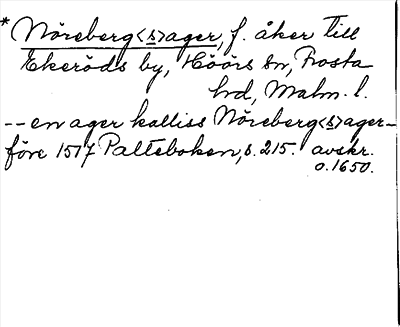 *Nöreberg<s>ager, f. åker till
Ekeröds by, Höörs sn, Frosta
hd, Malm. l.
-- en ager kalliss Nöreberg<s>ager --
före 1517 Palteboken, s. 215. avskr.
o. 1650.